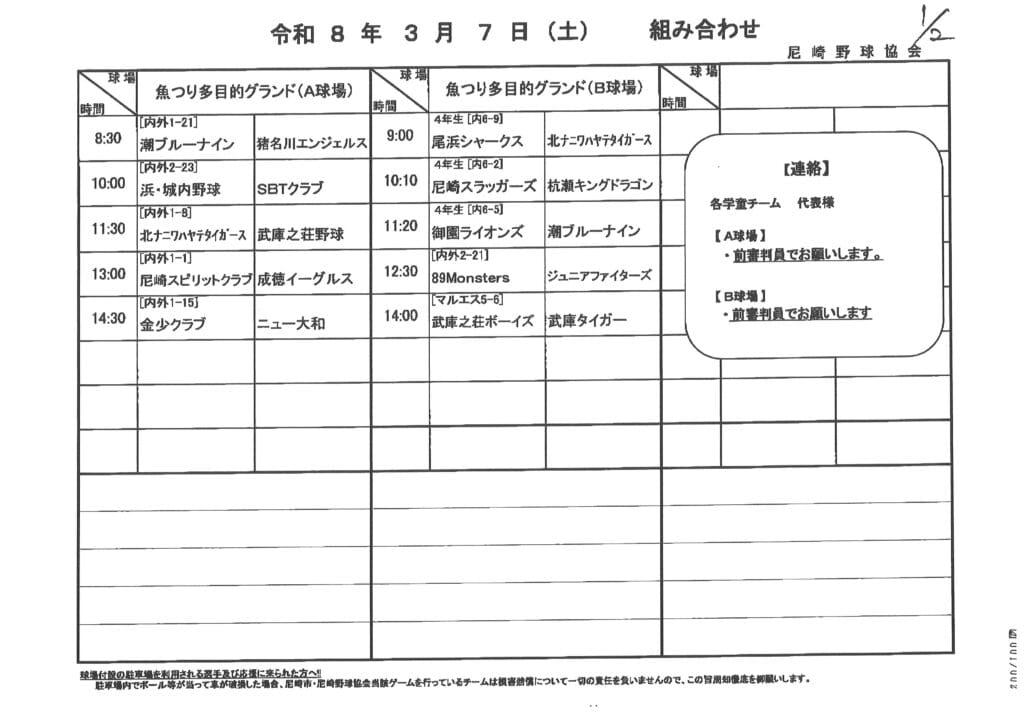 令和 8 年 3 月 7 日 (土) 組み合わせ
1/2
尼崎野球協会
球場 時間 魚つり多目的グランド(A球場) 球場 時間 魚つり多目的グランド(B球場) 球場 時間
8:30 [内外1-21] 潮ブルーナイン 猪名川エンジェルス 9:00 4年生 [内6-9] 尾浜シャークス 北ナニワハヤテタイガース
10:00 [内外2-23] 浜・城内野球 SBTクラブ 10:10 4年生 [内6-2] 尼崎スラッガーズ 杭瀬キングドラゴン
11:30 [内外1-8] 北ナニワハヤテタイガース 武庫之荘野球 11:20 4年生 [内6-5] 御園ライオンズ 潮ブルーナイン
13:00 [内外1-1] 尼崎スピリットクラブ 成徳イーグルス 12:30 [内外2-21] 89Monsters ジュニアファイターズ
14:30 [内外1-15] 金少クラブ ニュー大和 14:00 [マルエス5-6] 武庫之荘ボーイズ 武庫タイガー
【連絡】
各学童チーム 代表様
【A球場】
・前審判員でお願いします。
【B球場】
・前審判員でお願いします
球場付設の駐車場を利用される選手及び応援に来られた方へ!!
駐車場内でボール等が当って車が破損した場合、尼崎市・尼崎野球協会当該ゲームを行っているチームは損害賠償について一切の責任を負いませんので、この旨周知徹底を御願いします。